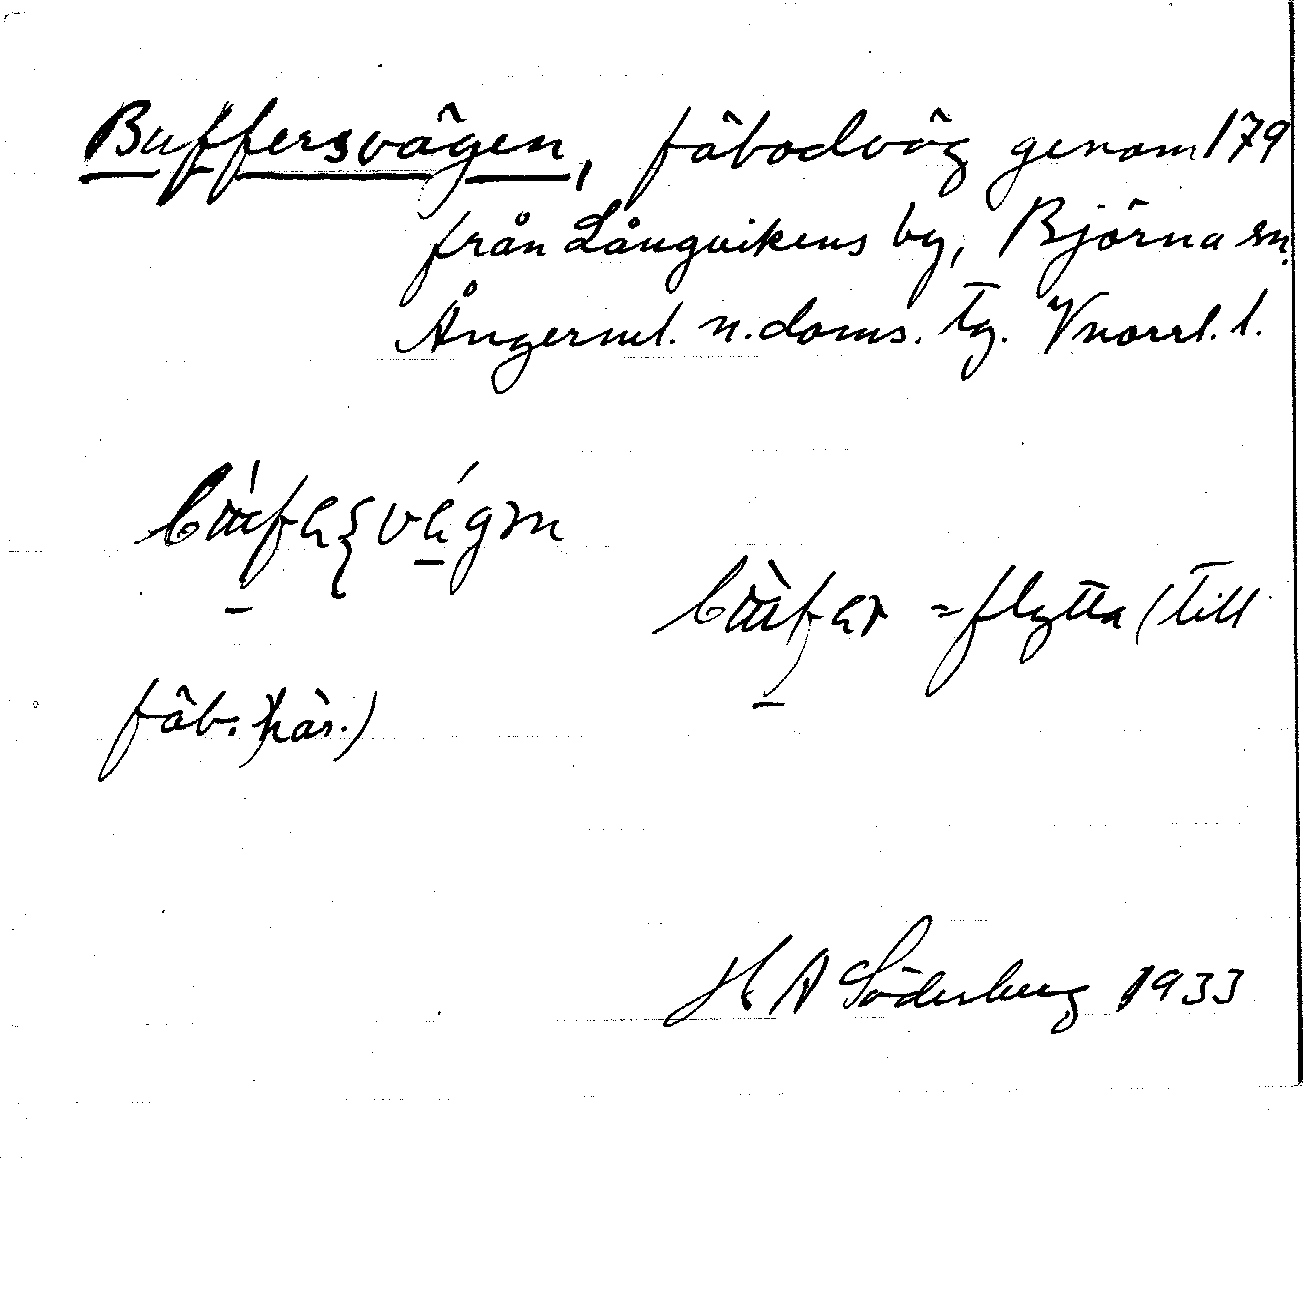 Buffersvägen, fäbodväg genom 179
från Långvikens by, Björna sn.
Ångerml. n. doms. tg. Vnorrl. l.
flytta (till
fäb. här.)
H A Söderberg 1933